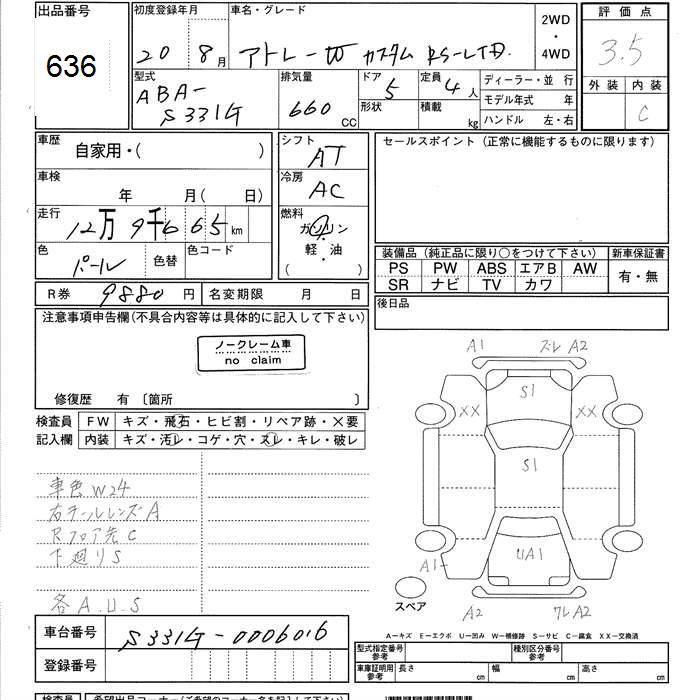 出品番号
636
初度登録年月
20 8月
車名・グレード
アトレーW カスタム RS-LTD.
2WD
・
4WD
評価点
3.5
外装 内装
C
型式
ABA-
S331G
排気量
660 CC
ドア
5
形状
定員
4人
積載
kg
ディーラー・並 行
モデル年式 年
ハンドル 左・右
車歴
自家用・( )
車検
年 月( 日)
走行
12万9千665km
色
パール
色替
色コード
シフト
AT
冷房
AC
燃料
ガソリン
・
軽・油
( )
セールスポイント (正常に機能するものに限ります)
装備品 (純正品に限り○をつけて下さい)
PS PW ABS エアB AW
SR ナビ TV カワ
新車保証書
有・無
後日品
R券 9880円
名変期限 月 日
注意事項申告欄(不具合内容等は具体的に記入して下さい)
ノークレーム車
no claim
修復歴 有 〔箇所 〕
検査員
記入欄
FW キズ・飛石・ヒビ割・リペア跡・X要
内装 キズ・汚レ・コゲ・穴・スレ・キレ・破レ
車色W24
右テールレンズA
Rフロア先C
下廻りS
各A.U.S
A1
ズレA2
S1
XX
XX
S1
UA1
A1
A2
ワレA2
スペア
A－キズ E－エクボ U－凹み W－補修跡 S－サビ C－腐食 XX－交換済
車台番号
S331G-0006016
登録番号
型式指定番号
参考
種別区分番号
参考
車庫証明用
参考
長さ cm
幅 cm
高さ cm